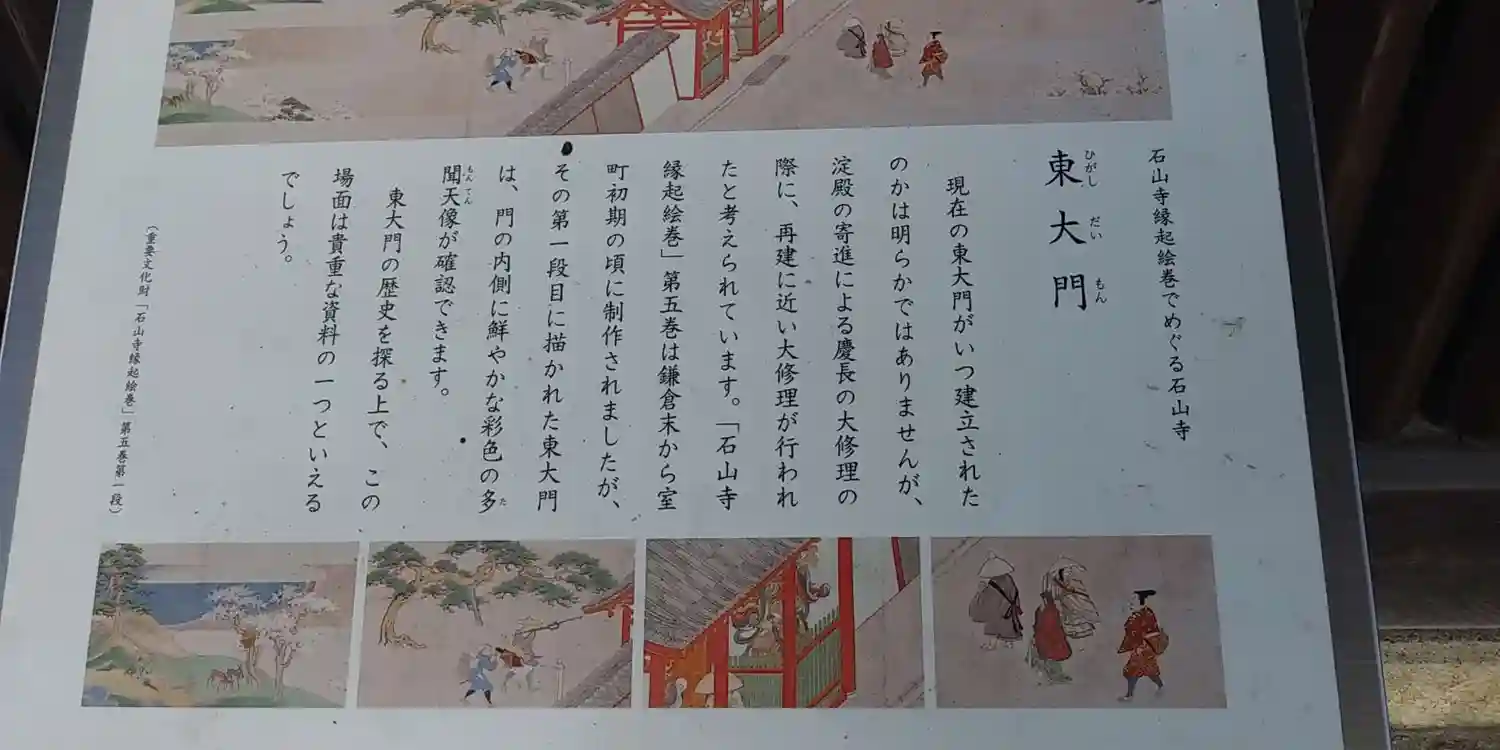 石山寺縁起絵巻でめぐる石山寺
東大門
ひがし だい もん
現在の東大門がいつ建立された
のかは明らかではありませんが、
淀殿の寄進による慶長の大修理の
際に、再建に近い大修理が行われ
たと考えられています。「石山寺
縁起絵巻」第五巻は鎌倉末から室
町初期の頃に制作されましたが、
その第一段目に描かれた東大門
は、門の内側に鮮やかな彩色の多
た
聞天像が確認できます。
もん てん
東大門の歴史を探る上で、この
場面は貴重な資料の一つといえる
でしょう。
(重要文化財「石山寺縁起絵巻」第五巻第一段)